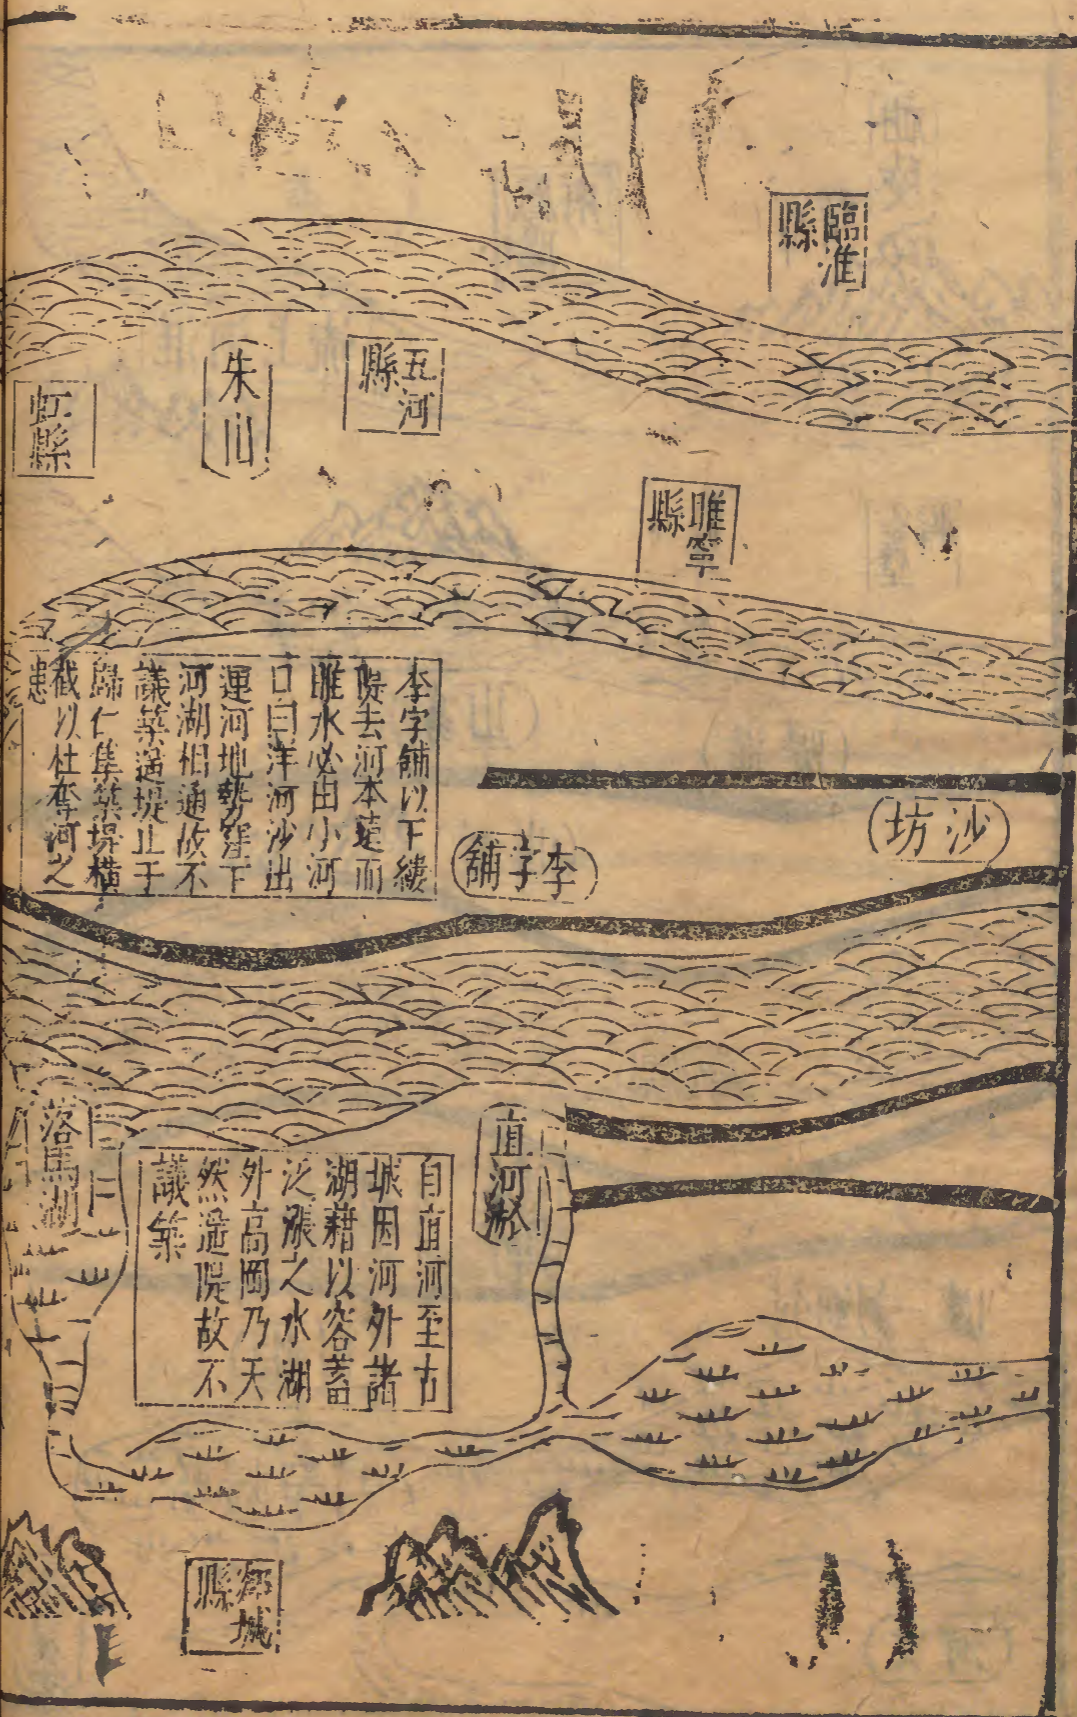 臨淮
縣
五河
縣
朱
虹縣
睢寧
縣
李字舖以下縷
隄去河本遠而
睢水必由小河
口白洋河沙出
運河地勢窪下
河湖相通故不
議築遥堤止于
歸仁集築堤橫
截以杜奪河之
患
沙坊
李字舖
直河
落馬湖
自直河至古
城因河外諸
湖藉以容蓄
泛漲之水湖
外高岡乃天
然遥隄故不
議築
郯城
縣